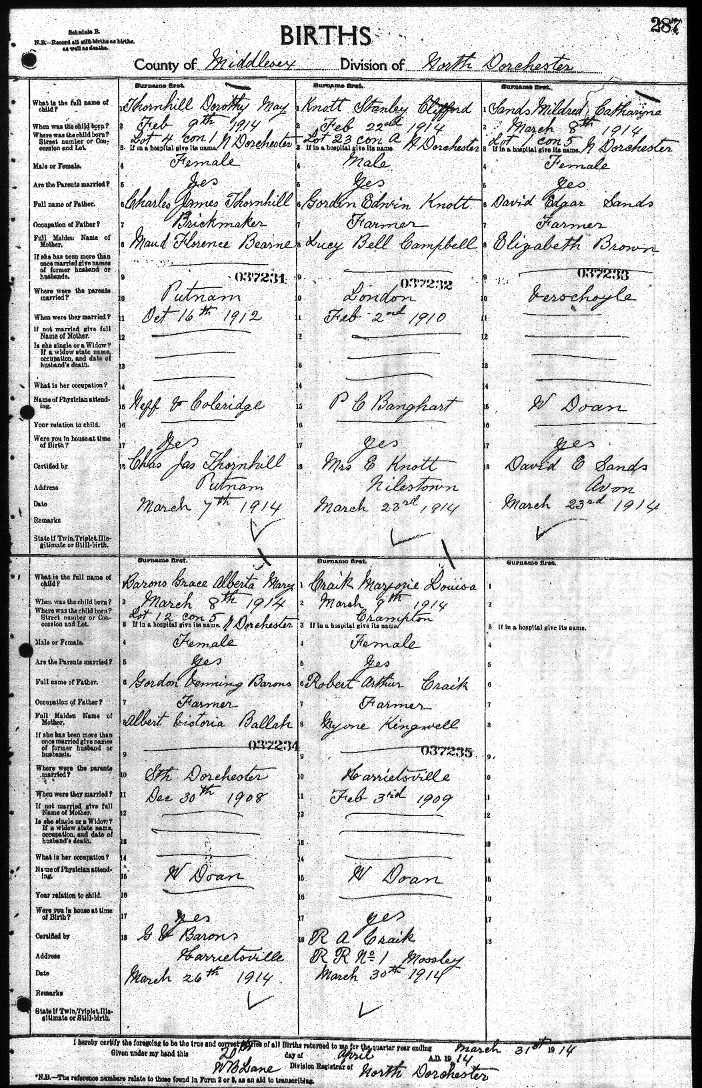 Schedule B.
N.B.—Record all still births as births.
as well as deaths.
BIRTHS
287
County of Middlesex Division of North Dorchester
Surname first. Surname first. Surname first.
What is the full name of child? 1 Thornhill Dorothy May 1 Knott Stanley Clifford 1 Sands Mildred Catharine
When was the child born? 2 Feb 9th 1914 2 Feb 22nd 1914 2 March 8th 1914
Where was the child born? Street number or Concession and Lot. Lot 4 con 1 N Dorchester Lot 23 con A N Dorchester Lot con 5 N Dorchester
3 If in a hospital give its name. 3 If in a hospital give its name. 3 If in a hospital give its name.
Male or Female. 4 Female 4 Male 4 Female
Are the Parents married? 5 Yes 5 Yes 5 Yes
Full name of Father. 6 Charles James Thornhill 6 Gordon Edwin Knott 6 David Edgar Sands
Occupation of Father? 7 Brickmaker 7 Farmer 7 Farmer
Full Maiden Name of Mother. 8 Maud Florence Bearne 8 Lucy Bell Campbell 8 Elizabeth Brown
If she has been more than once married give names of former husband or husbands. 9 9 9
037231 037232 037233
Where were the parents married? 10 Putnam 10 London 10 Verschoyle
When were they married? 11 Oct 16th 1912 11 Feb 2nd 1910 11
If not married give full Name of Mother. 12 12 12
Is she single or a Widow? If a widow state name, occupation, and date of husband's death. 13 13 13
What is her occupation? 14 14 14
Name of Physician attending. 15 Neff & Coleridge 15 P C Banghart 15 W Doan
Your relation to child. 16 16 16
Were you in house at time of Birth? 17 Yes 17 yes 17 yes
Certified by 18 Chas Jas Thornhill 18 Mrs E Knott 18 David E Sands
Address Putnam Nilestown Avon
Date March 7th 1914 March 23rd 1914 March 23rd 1914
Remarks
State if Twin, Triplet, Illegitimate or Still-birth.
Surname first. Surname first. Surname first.
What is the full name of child? Barons Grace Alberta Mary 1 Craik Marjorie Louisa 1
When was the child born? 2 March 8th 1914 2 March 9th 1914 2
Where was the child born? Street number or Concession and Lot. Lot 12 con 5 N Dorchester Crampton
3 If in a hospital give its name. 3 If in a hospital give its name. 3 If in a hospital give its name.
Male or Female. 4 Female 4 Female 4
Are the Parents married? 5 Yes 5 Yes 5
Full name of Father. 6 Gordon Venning Barons 6 Robert Arthur Craik 6
Occupation of Father? 7 Farmer 7 Farmer 7
Full Maiden Name of Mother. Albert Victoria Ballah 8 Kingwell 8
If she has been more than once married give names of former husband or husbands. 9 9 9
037234 037235
Where were the parents married? 10 Sth Dorchester 10 Harrietsville 10
When were they married? 11 Dec 30th 1908 11 Feb 3rd 1909 11
If not married give full Name of Mother. 12 12 12
Is she single or a Widow? If a widow state name, occupation, and date of husband's death. 13 13 13
What is her occupation? 14 14 14
Name of Physician attending. 15 W Doan 15 W Doan 15
Your relation to child. 16 16 16
Were you in house at time of Birth? 17 yes 17 yes 17
Certified by 18 G V Barons 18 R A Craik
Address Harrietsville R R No 1 Mossley
Date March 26th 1914 March 30th 1914
Remarks
State if Twin, Triplet, Illegitimate or Still-birth.
I hereby certify the foregoing to be the true and correct copies of all Births returned to me for the quarter year ending March 31st 1914
Given under my hand this 20th day of April A.D. 1914
W B Lane Division Registrar of North Dorchester
*N.B.—The reference numbers relate to those found in Form 2 or 8, as an aid to transcribing.